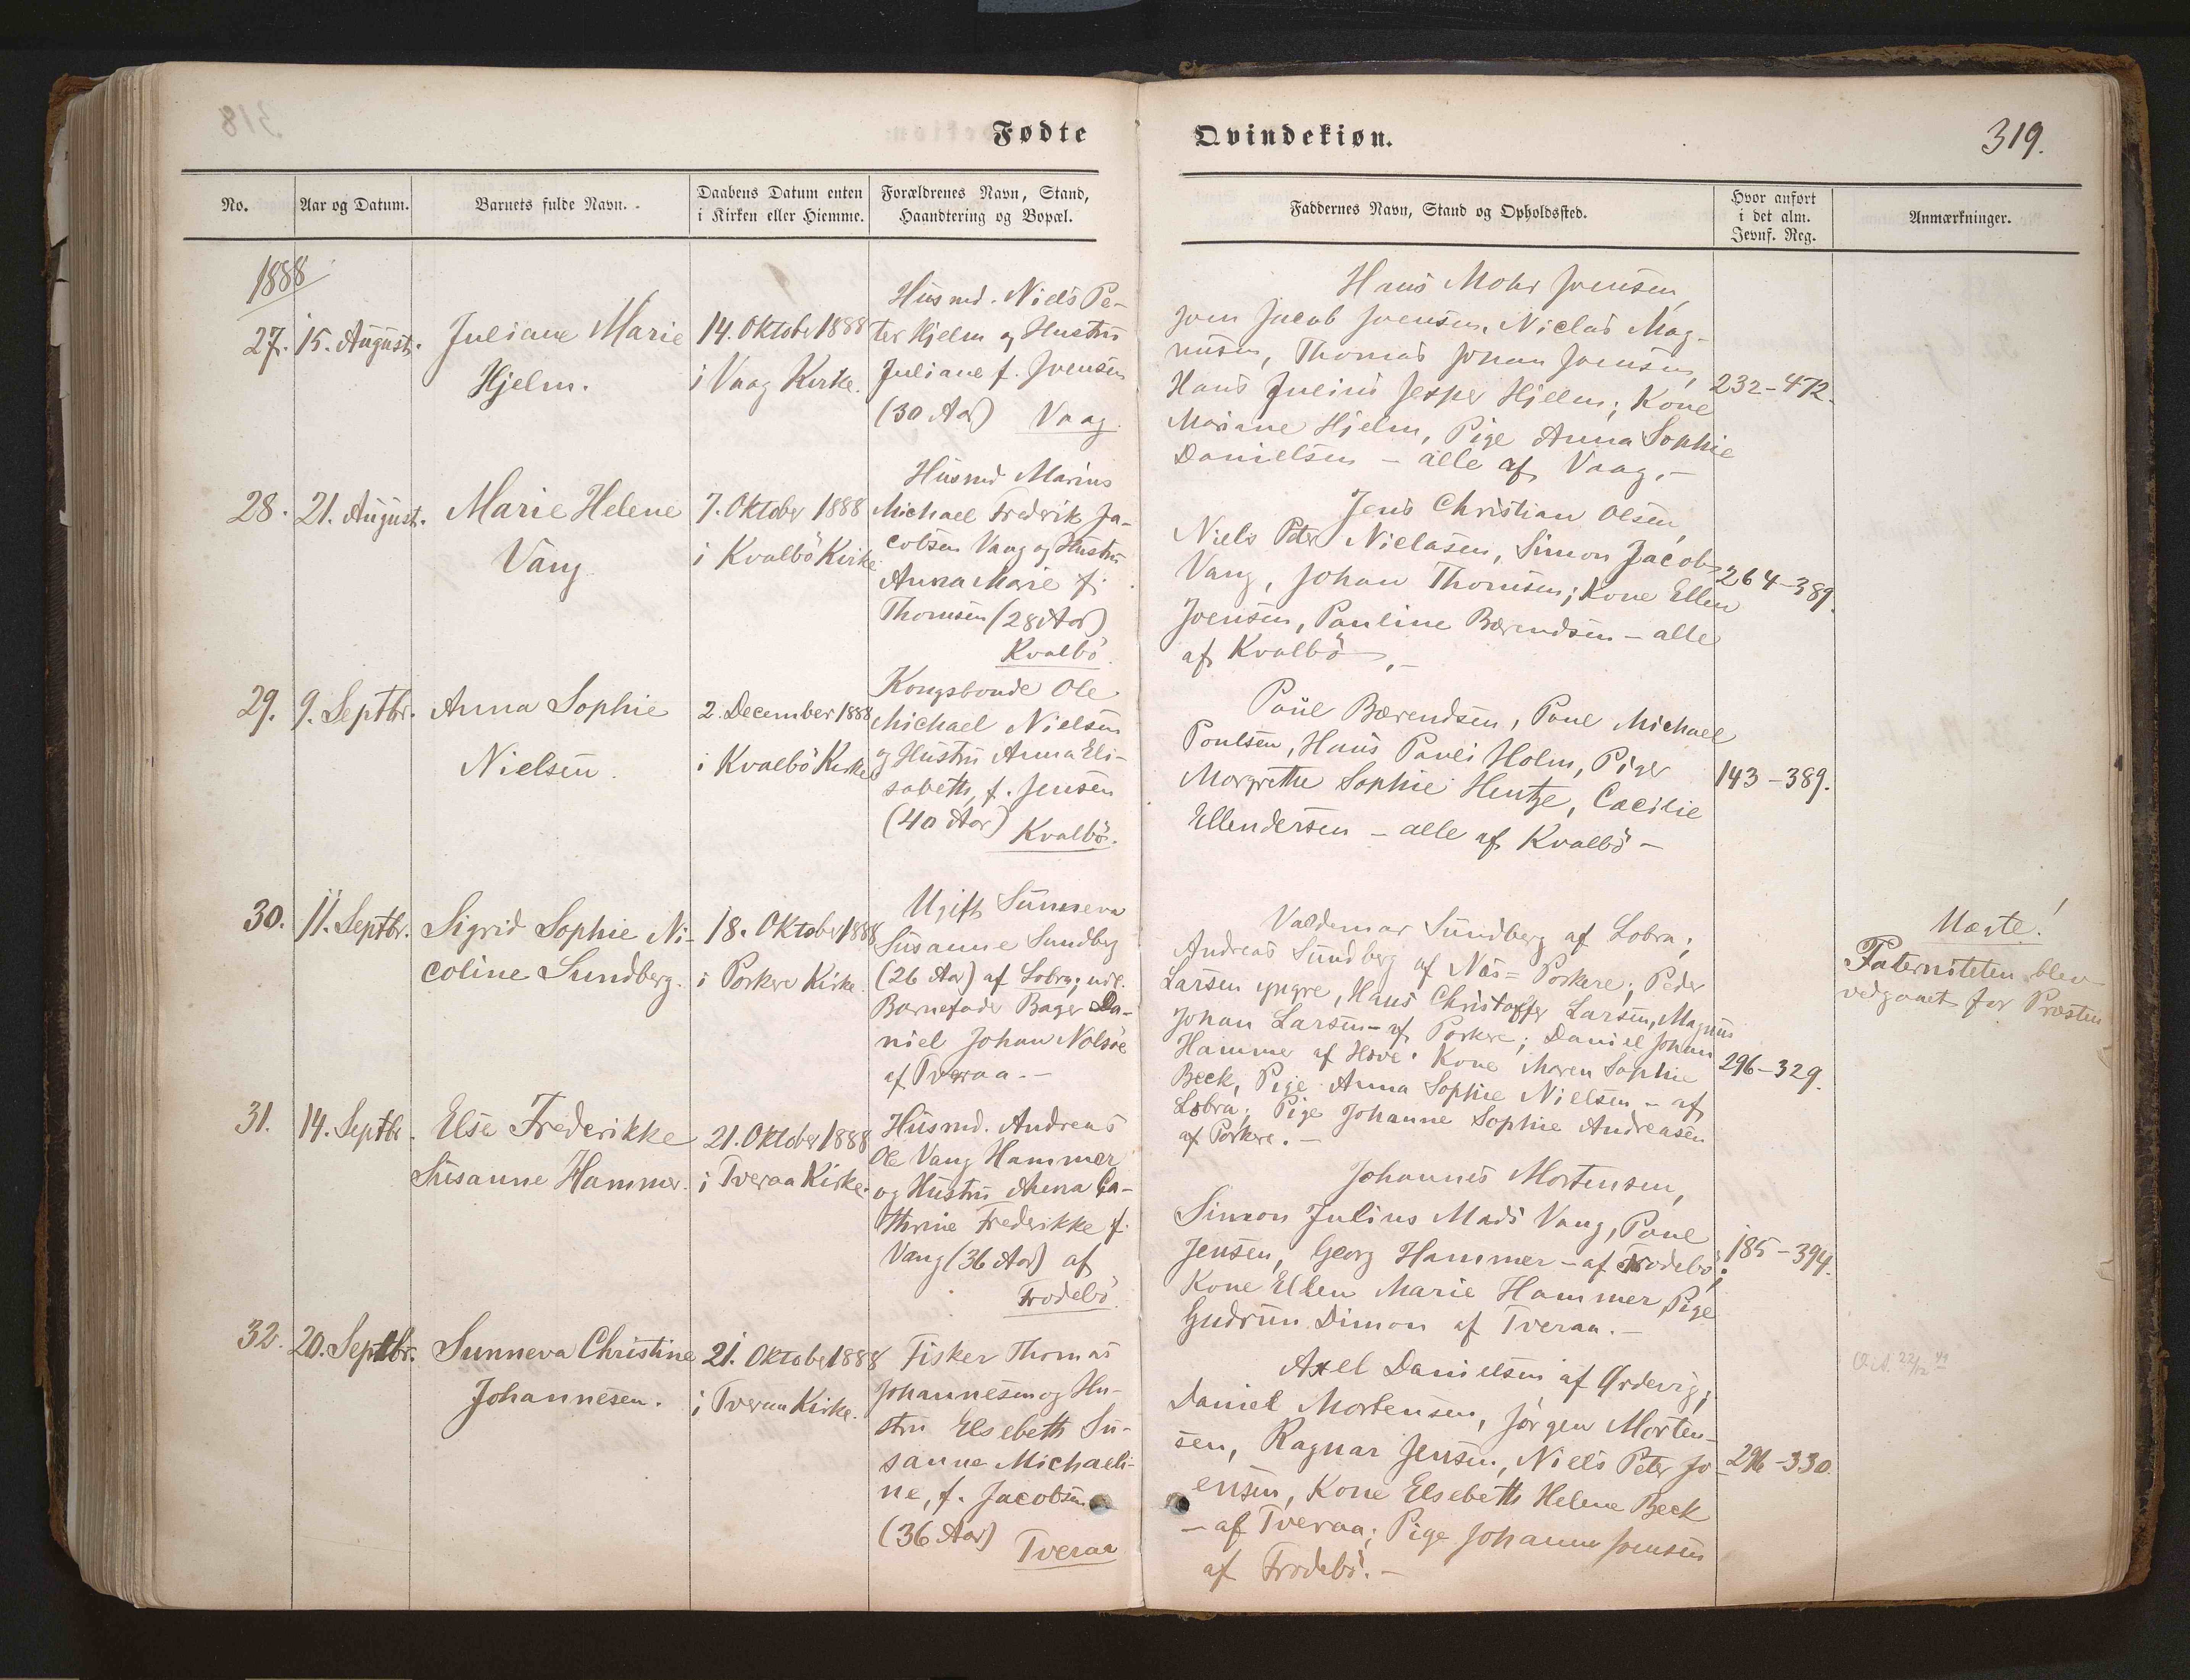 Fødte
Qvindekiøn.
319.
No.
Aar og Datum.
Barnets fulde Navn.
Daabens Datum enten
i Kirken eller Hiemme.
Forældrenes Navn, Stand,
Haandtering og Bopæl.
Faddernes Navn, Stand og Opholdssted.
Hvor anført
i det alm.
Jevnf. Reg.
Anmærkninger.
1888
27.
15. August.
Juliane Marie
Hjelm.
14. Oktober 1888
i Vaag Kirke.
Husmd. Niels Pe-
ter Hjelm og Hustru
Juliane f. Joensen
(30 Aar) Vaag.
Hans Mohr Joensen,
Joen Jacob Joensen, Niclas Mag-
nusen, Thomas Johan Joensen,
Hans Julius Jesper Hjelm; Kone
Mariane Hjelm, Pige Anna Sophie
Danielsen - alle af Vaag.-
232-472.
28.
21. August.
Marie Helene
Vang
7. Oktober 1888
i Kvalbö Kirke
Husmd Marius
Michael Fredrik Ja-
cobsen Vang og Hustru
Anna Marie f.
Thomsen (28 Aar)
Kvalbö.
Jens Christian Olsen,
Niels Peter Niclasen, Simon Jacob
Vang, Johan Thomsen; Kone Ellen
Joensen, Pauline Bærendsen - alle
af Kvalbö.-
264-389.
29.
9. Septbr.
Anna Sophie
Nielsen.
2. December 1888
i Kvalbö Kirke
Kongsbonde Ole
Michael Nielsen
og Hustru Anna Eli-
sabeth, f. Jensen
(40 Aar)
Kvalbö.
Poul Bærendsen, Poul Michael
Poulsen, Hans Pauli Holm, Piger
Margrethe Sophie Hentze, Cæcilie
Ellendersen - alle af Kvalbö-
143-389.
30.
11. Septbr.
Sigrid Sophie Ni-
coline Sundberg.
18. Oktober 1888
i Porkere Kirke.
Ugift Sunneva
Susanne Sundberg
(26 Aar) af Lobra; udl.
Barnefader Bager Da-
niel Johan Nolsöe
af Tveraa.-
Valdemar Sundberg af Lobra;
Andreas Sundberg af Næs=Porkere; Peder
Larsen yngre, Hans Christoffer Larsen, Magnus
Johan Larsen - af Porkere; Daniel Johan
Hammer af Hove; Kone Maren Sophie
Beck, Pige Anna Sophie Nielsen - af
Lobra; Pige Johanne Sophie Andreasen
af Porkere.-
296-329.
Uægte!
Paterniteten blev
vedgaaet for Præsten
31.
14. Septbr.
Else Frederikke
Susanne Hammer.
21. Oktober 1888
i Tveraa Kirke.
Husmd. Andreas
Ole Vang Hammer
og Hustru Anna Ca-
thrine Frederikke f.
Vang (36 Aar) af
Frodebö.
Johannes Mortensen,
Simon Julius Mads Vang, Poul
Jensen, Georg Hammer - af Frodebö;
Kone Ellen Marie Hammer, Pige
Gudrun Dimon af Tveraa.-
185-394.
32.
20. Septbr.
Sunneva Christine
Johannesen.
21. Oktober 1888
i Tveraa Kirke.
Fisker Thomas
Johannesen og Hu-
stru Elsebeth Su-
sanne Michaeli-
ne, f. Jacobsen
(36 Aar)
Tveraa
Axel Danielsen af Ørdevig;
Daniel Mortensen, Jörgen Morten-
sen, Ragnar Jensen, Niels Peter Jo-
ensen, Kone Elsebeth Helene Beck
- af Tveraa; Pige Johanne Joensen
af Frodebö.-
296-330.